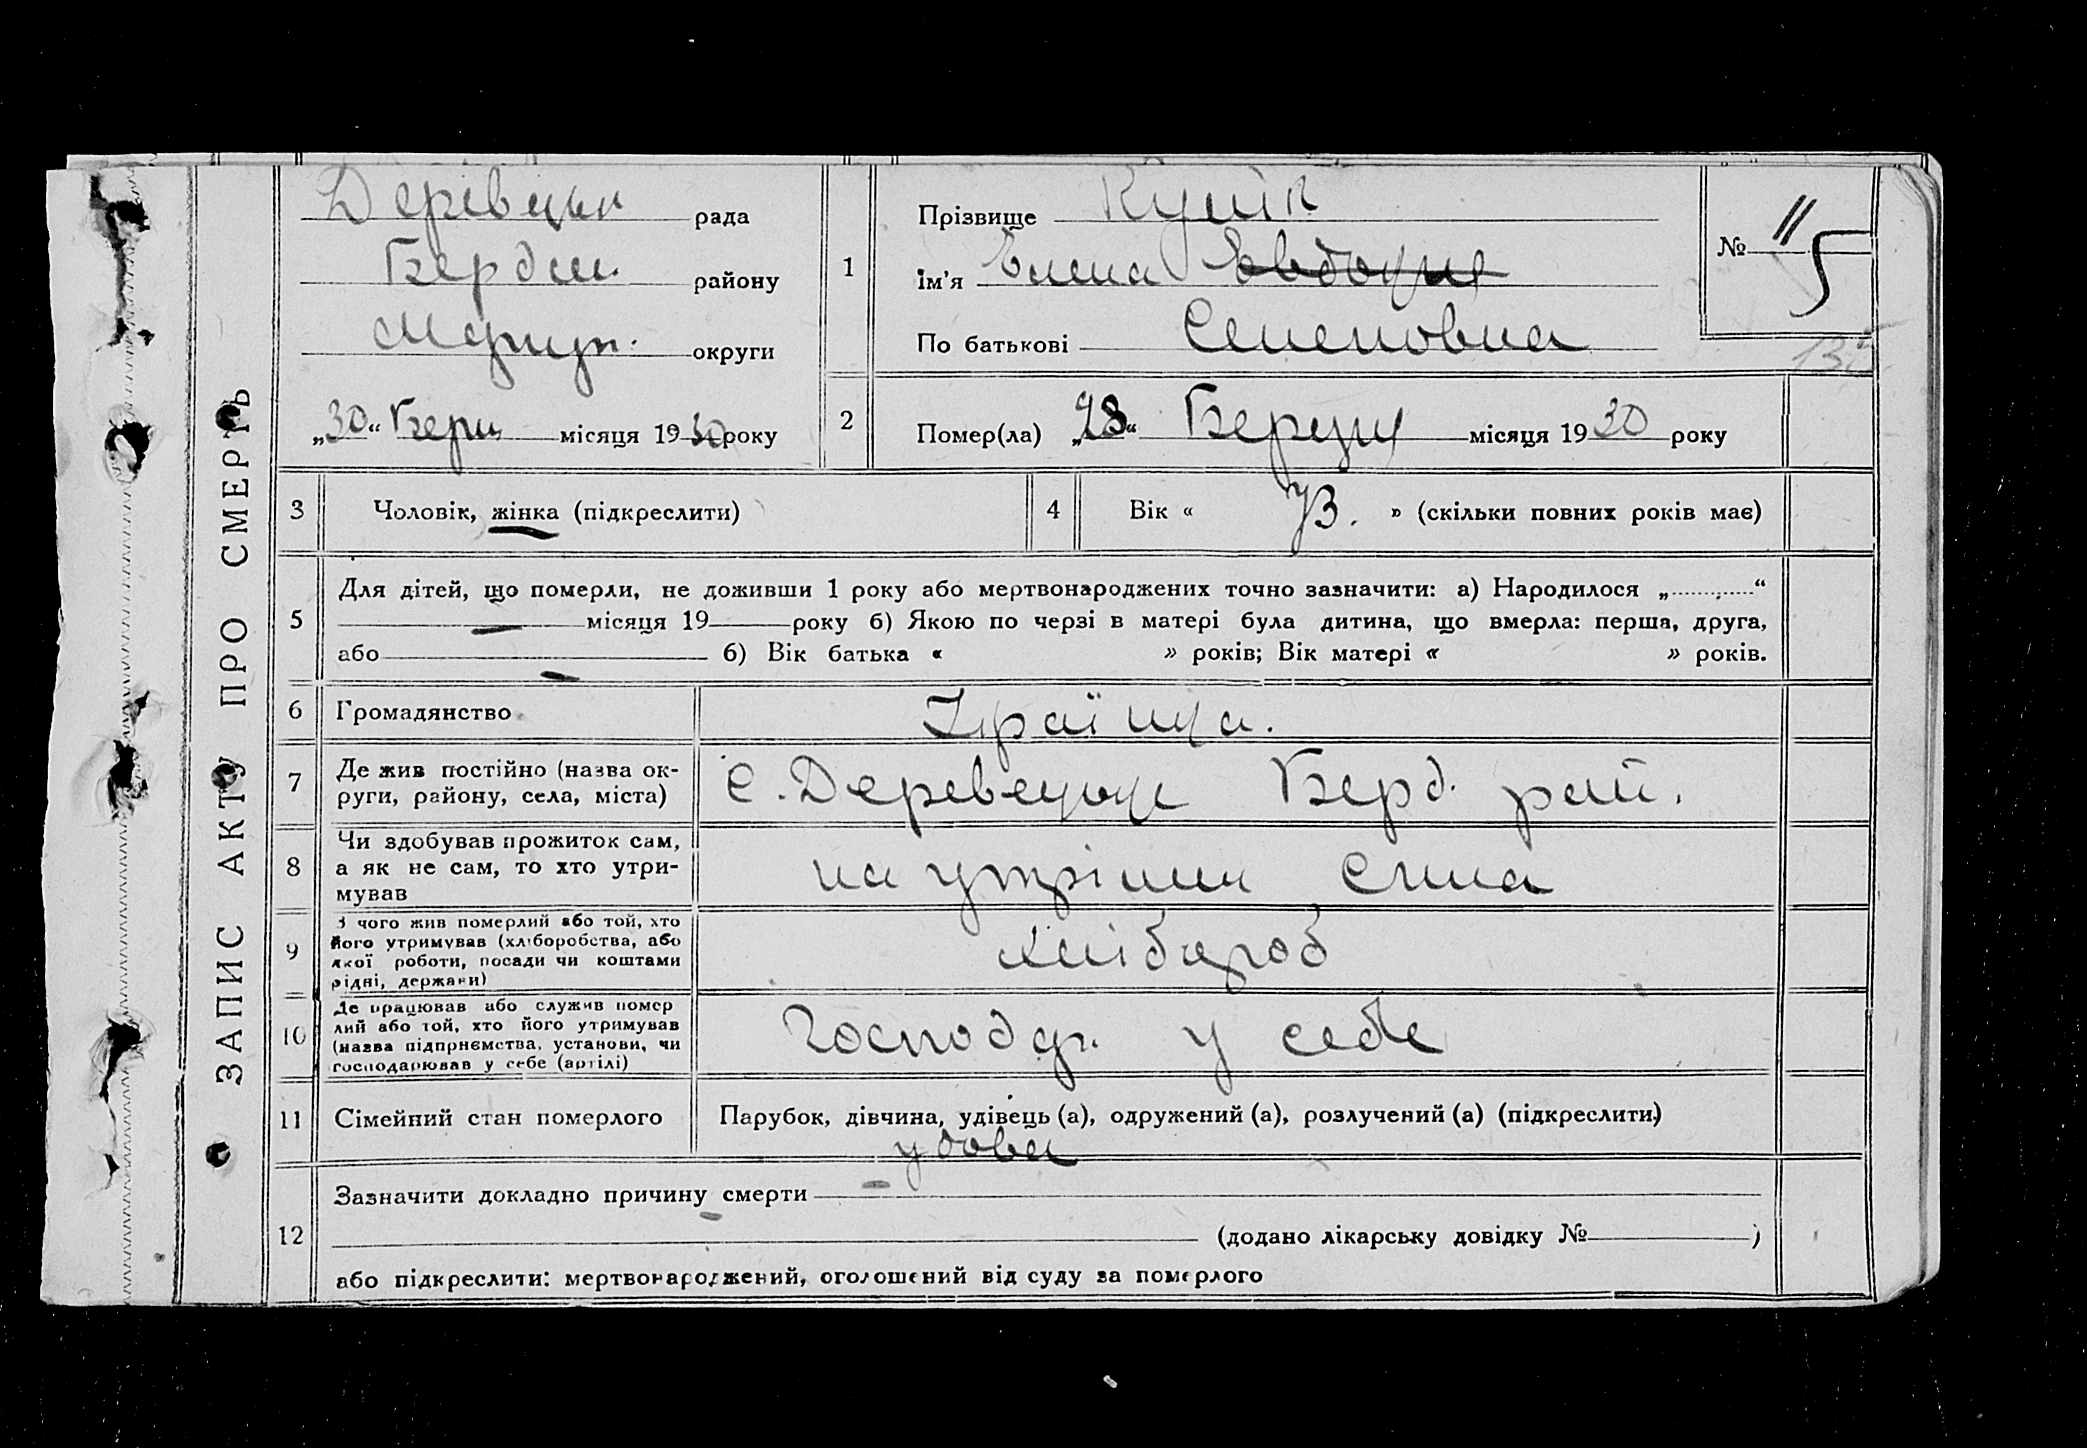 ЗАПИС АКТУ ПРО СМЕРТЬ
рада
Берд. району
округи
„30“ Бер. місяця 1930 року
1
Прізвище Куцик
Ім'я Елена Евдокия
По батькові Семеновна
№ 5
2
Помер(ла) „28“ Березня місяця 1930 року
3 Чоловік, жінка (підкреслити)
4 Вік « 73. » (скільки повних років має)
5
Для дітей, що померли, не доживши 1 року або мертвонароджених точно зазначити: а) Народилося „ “
— місяця 19 року б) Якою по черзі в матері була дитина, що вмерла: перша, друга,
або — б) Вік батька « » років; Вік матері « » років.
6 Громадянство
7 Де жив постійно (назва ок-
руги, району, села, міста)
с. Деревецьке Берд. рай.
8 Чи здобував прожиток сам,
а як не сам, то хто утри-
мував
на утрiмен Сина
9 З чого жив померлий або той, хто
його утримував (хліборобства, або
якої роботи, посади чи коштами
рідні, держави)
хлібороб
10 Де працював або служив помер
лий або той, хто його утримував
(назва підприємства, установи, чи
господарював у себе (артілі)
Господар. у себе
11 Сімейний стан померлого
Парубок, дівчина, удівець (а), одружений (а), розлучений (а) (підкреслити)
удова
12
Зазначити докладно причину смерти —
(додано лікарську довідку № )
або підкреслити: мертвонароджений, оголошений від суду за померлого